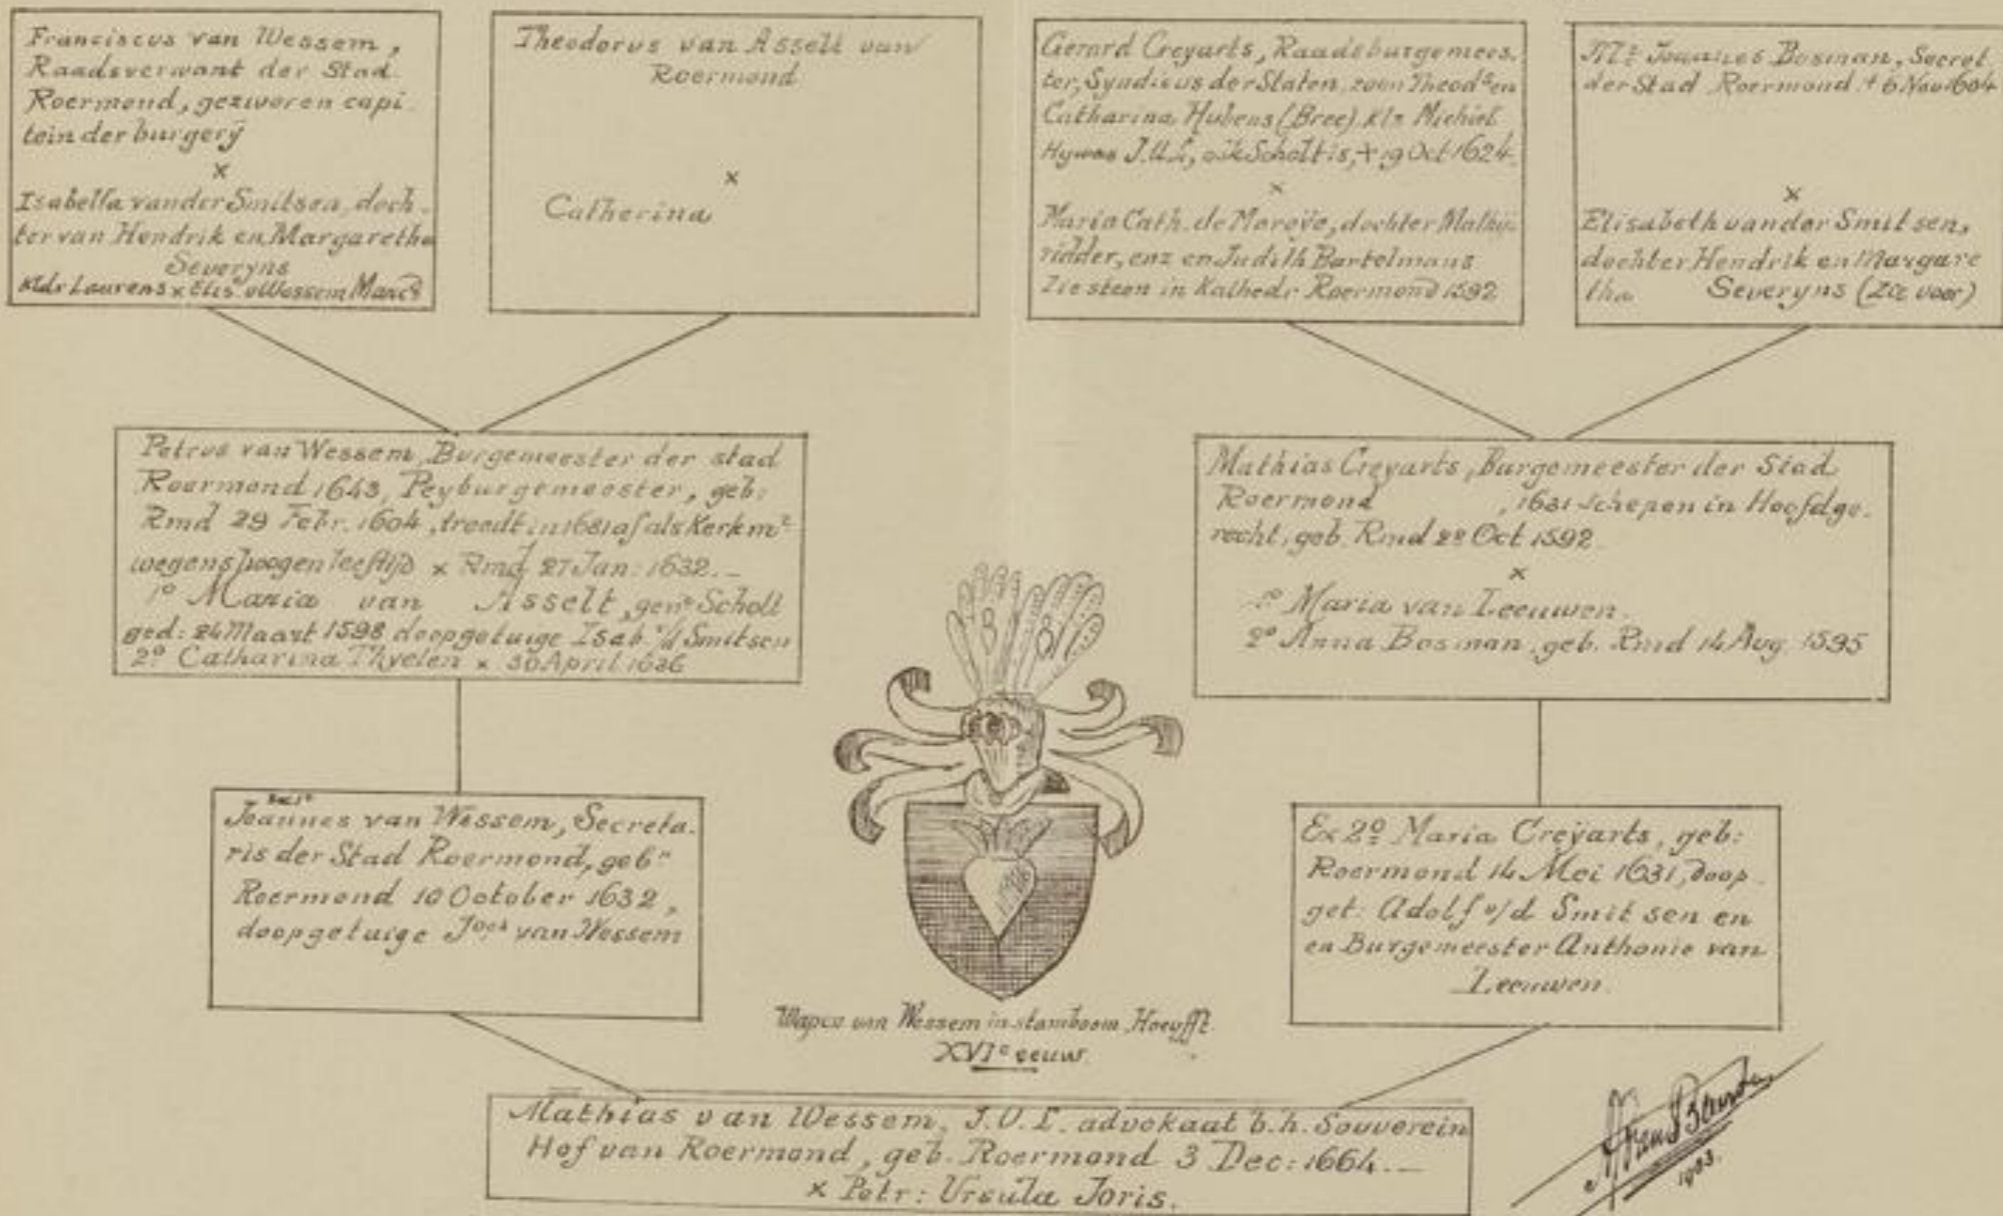 Franciscus van Wessem,
Raadsverwant der Stad
Roermond, gezworen capi-
tein der burgerÿ
x
Isabella vander Smitsen, doch-
ter van Hendrik en Margaretha
Severyns
Kldr Laurens x Elis. v Wessem
Theodorus van Asselt van
Roermond
x
Catherina
Gerard Creyarts, Raadsburgemees-
ter, Syndicus der Staten, zoon Theods en
Catharina Hubens (Bree) Klz Michiel
J.U.L, oik Scholtis, + 19 Oct 1624
x
Maria Cath. de Maroÿe, dochter
ridder, enz en Judith Bartelmans
Zie steen in Kathedr Roermond 1592
Mr Joannes Bosman, Secret.
der Stad Roermond + 6 Nov 1604
x
Elisabeth vander Smitsen,
dochter Hendrik en Margare
tha Severyns (Zie voor)
Petrus van Wessem, Burgemeester der stad
Roermond 1643, Peyburgemeester, geb:
Rmd 29 Febr. 1604, treedt in 1681 af als Kerkmr
wegens hoogen leeftijd x Rmd 27 Jan: 1632.—
1o Maria van Asselt, genr Scholl
ged: 24 Maart 1598 doopgetuige Isab. v/d Smitsen
2o Catharina Thyelen x 30 April 1636
Mathias Creyarts, Burgemeester der Stad
Roermond , 1631 schepen in Hoofdge-
recht, geb. Rmd 28 Oct 1592
x
1o Maria van Leeuwen.
2o Anna Bosman, geb. Rmd 14 Aug. 1595
Joannes van Wessem, Secreta-
ris der Stad Roermond, gebn
Roermond 10 October 1632,
doopgetuige Joes van Wessem
Ex 2o Maria Creÿarts, geb:
Roermond 14 Mei 1631, doop-
get: Adolf v/d Smitsen en
en Burgemeester Anthonie van
Leeuwen.
Wapen van Wessem in stamboom Hoeufft
XVIe eeuw.
Mathias van Wessem, J.U.L. advokaat b.h. Souverein
Hof van Roermond, geb. Roermond 3 Dec: 1664.—
x Petr: Ursula Joris.